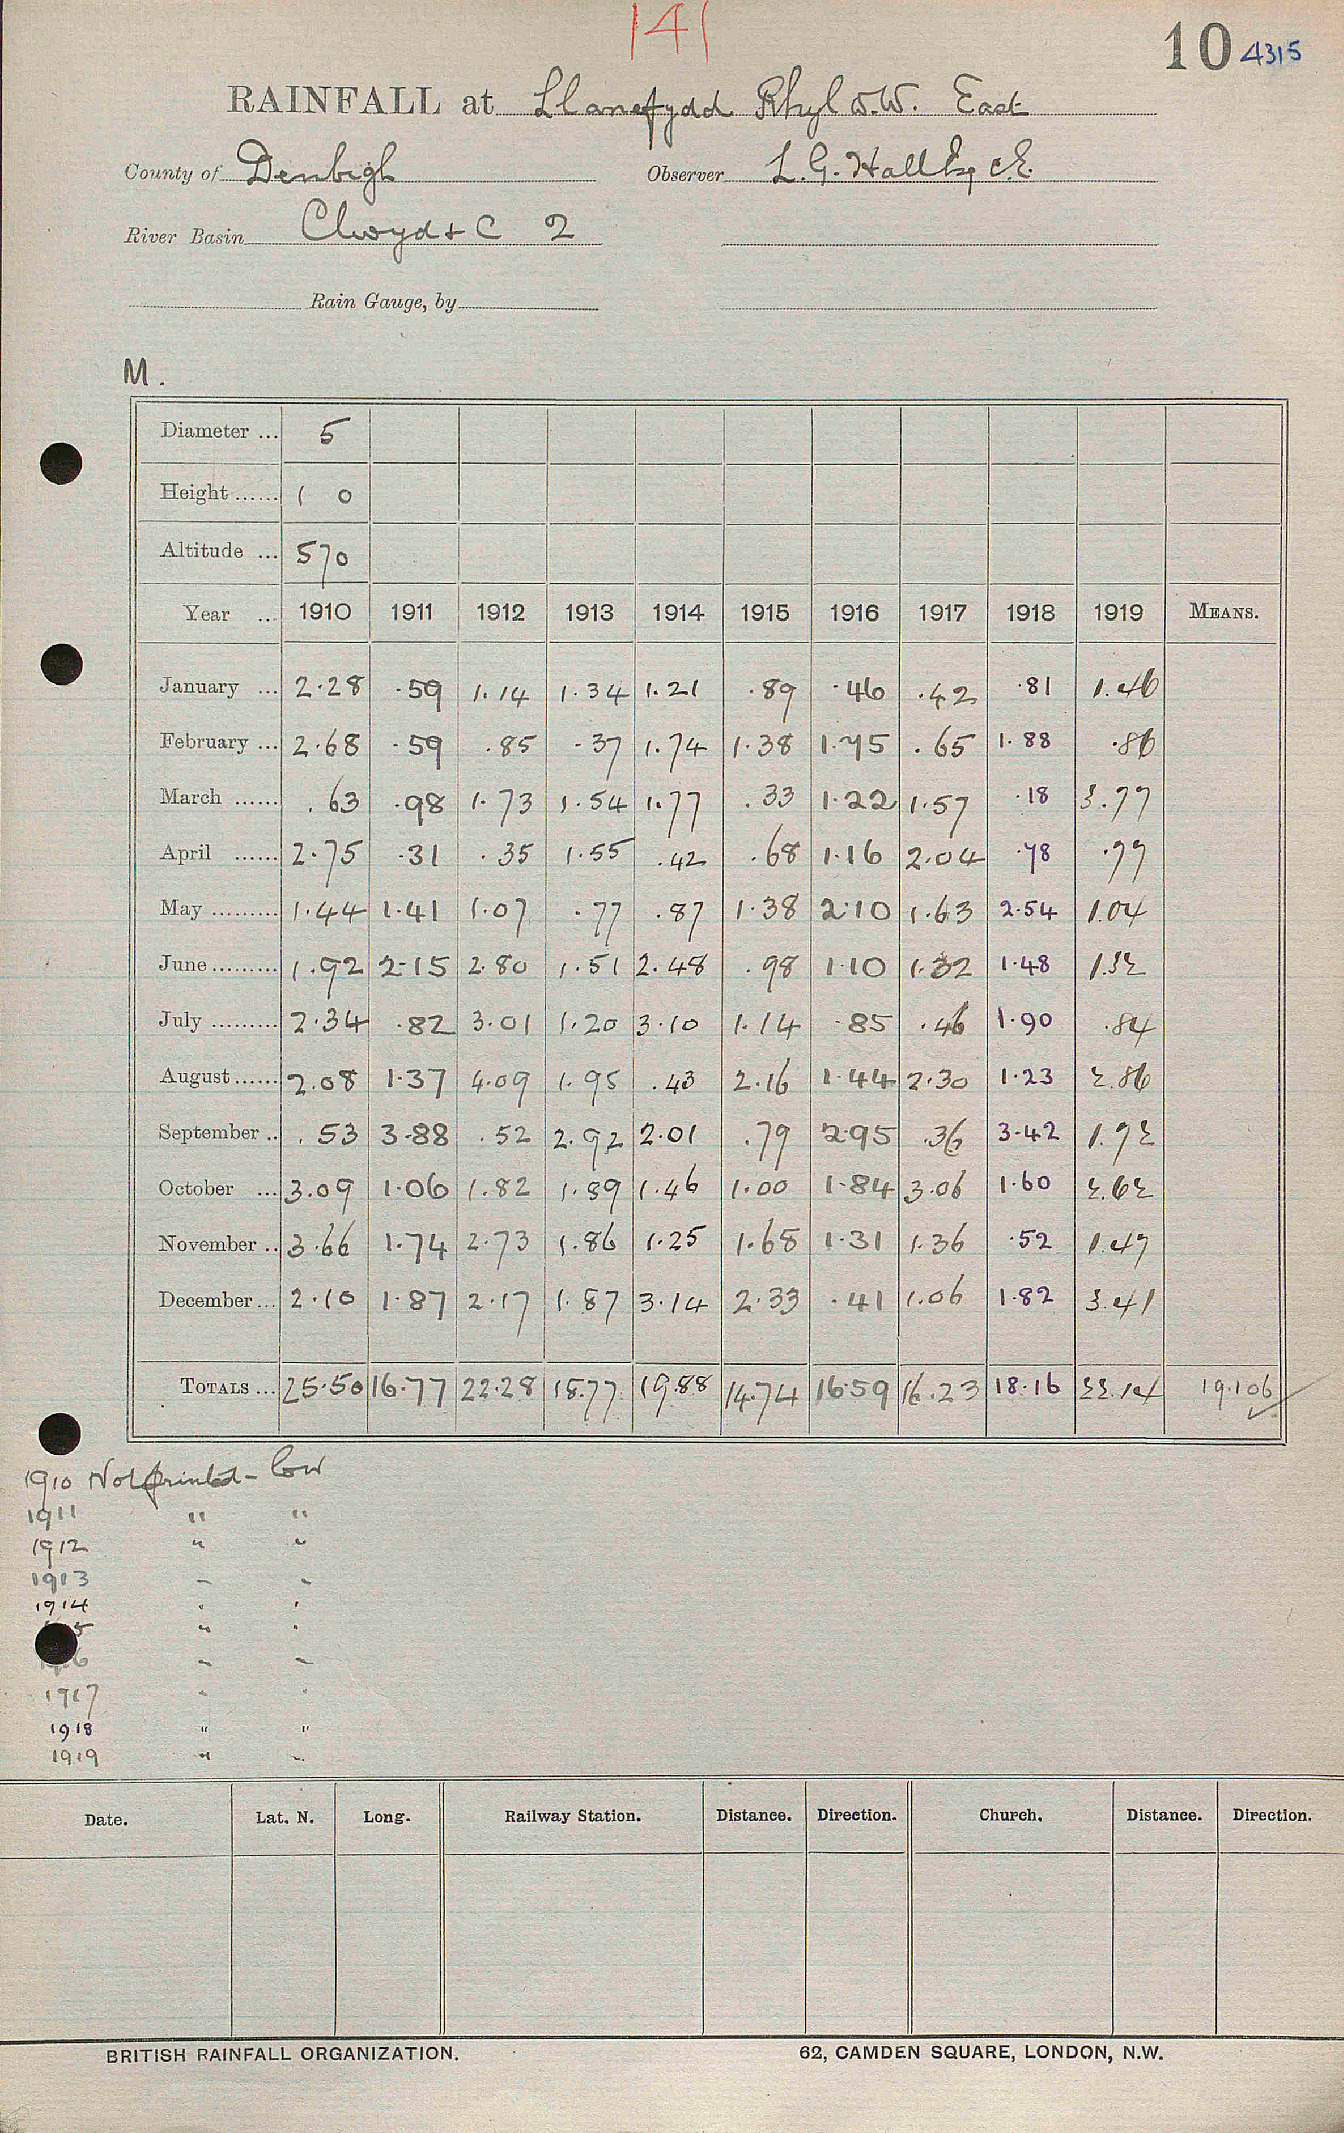 141
10 4315
RAINFALL at Llanefydd Rhyl W.W. East
County of Denbigh Observer L. G. Hall Esq C.E.
River Basin Clwyd & C 2
Rain Gauge, by
M.
Diameter ... 5
Height ...... 1 0
Altitude ... 570
Year ... 1910 1911 1912 1913 1914 1915 1916 1917 1918 1919 MEANS.
January ... 2.28 .59 1.14 1.34 1.21 .89 .46 .42 .81 1.46
February ... 2.68 .59 .85 .37 1.74 1.38 1.75 .65 1.88 .86
March ...... .63 .98 1.73 1.54 1.77 .33 1.22 1.57 .18 3.77
April ...... 2.75 .31 .35 1.55 .42 .68 1.16 2.04 .78 .77
May ......... 1.44 1.41 1.07 .77 .87 1.38 2.10 1.63 2.54 1.04
June ......... 1.92 2.15 2.80 1.51 2.48 .98 1.10 1.32 1.48 1.32
July ......... 2.34 .82 3.01 1.20 3.10 1.14 .85 .46 1.90 .84
August ...... 2.08 1.37 4.09 1.95 .43 2.16 1.44 2.30 1.23 2.86
September .. .53 3.88 .52 2.92 2.01 .79 2.95 .36 3.42 1.72
October ... 3.09 1.06 1.82 1.89 1.46 1.00 1.84 3.06 1.60 2.62
November .. 3.66 1.74 2.73 1.86 1.25 1.68 1.31 1.36 .52 1.47
December ... 2.10 1.87 2.17 1.87 3.14 2.33 .41 1.06 1.82 3.41
TOTALS ... 25.50 16.77 22.28 18.77 19.88 14.74 16.59 16.23 18.16 22.14 19.106
1910 Not printed - low
1911 " "
1912 " "
1913 " "
1914 " "
5 " "
6 " "
1917 " "
1918 " "
1919 " "
Date. Lat. N. Long. Railway Station. Distance. Direction. Church. Distance. Direction.
BRITISH RAINFALL ORGANIZATION. 62, CAMDEN SQUARE, LONDON, N.W.